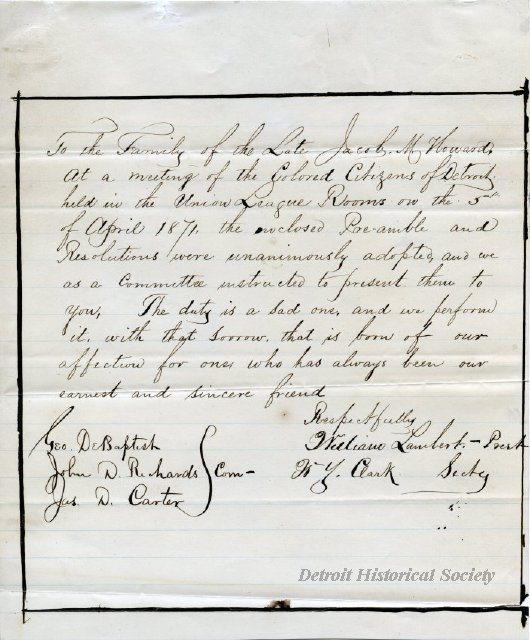 To the Family of the Late Jacob, M Howard,
At a meeting of the Colored Citizens of Detroit
held in the Union League Rooms on the 5th
of April 1871, the enclosed Pre-amble and
Resolutions were unanimously adopted, and we
as a Committee instructed to present them to
you, The duty is a sad one, and we perform
it, with that sorrow, that is born of our
affection for one, who has always been our
earnest and sincere friend
Respectfully
Geo. DeBaptist
John D. Richards
Jas. D. Carter
Com-
William Lambert. - Prest
W Y. Clark Secty
Detroit Historical Society